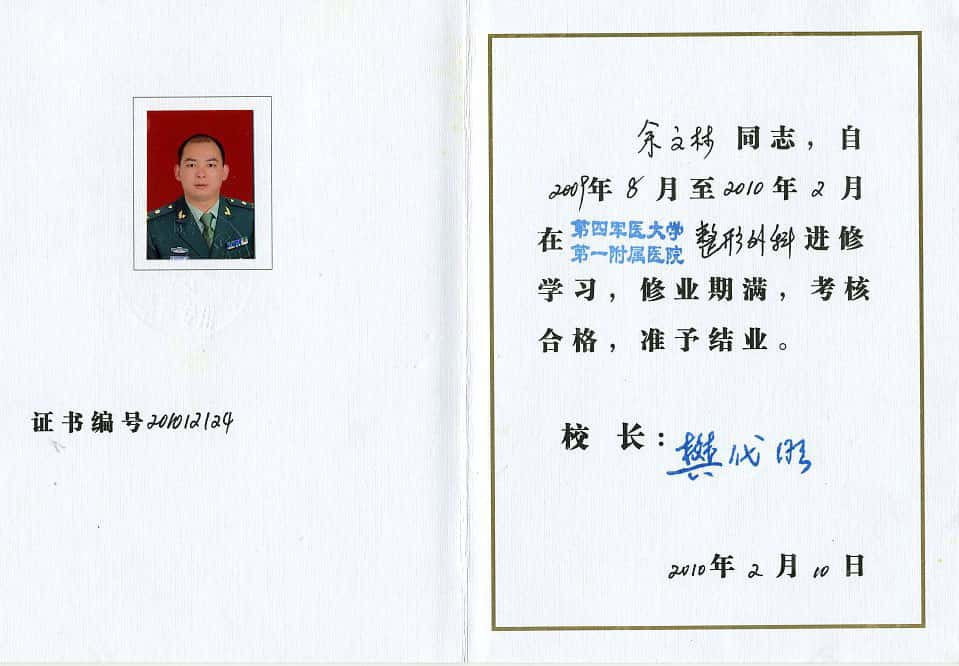 证书编号201012124
余文林同志，自
2009年8月至2010年2月
在第四军医大学第一附属医院整形外科进修
学习，修业期满，考核
合格，准予结业。
校长：樊代明
2010年2月10日